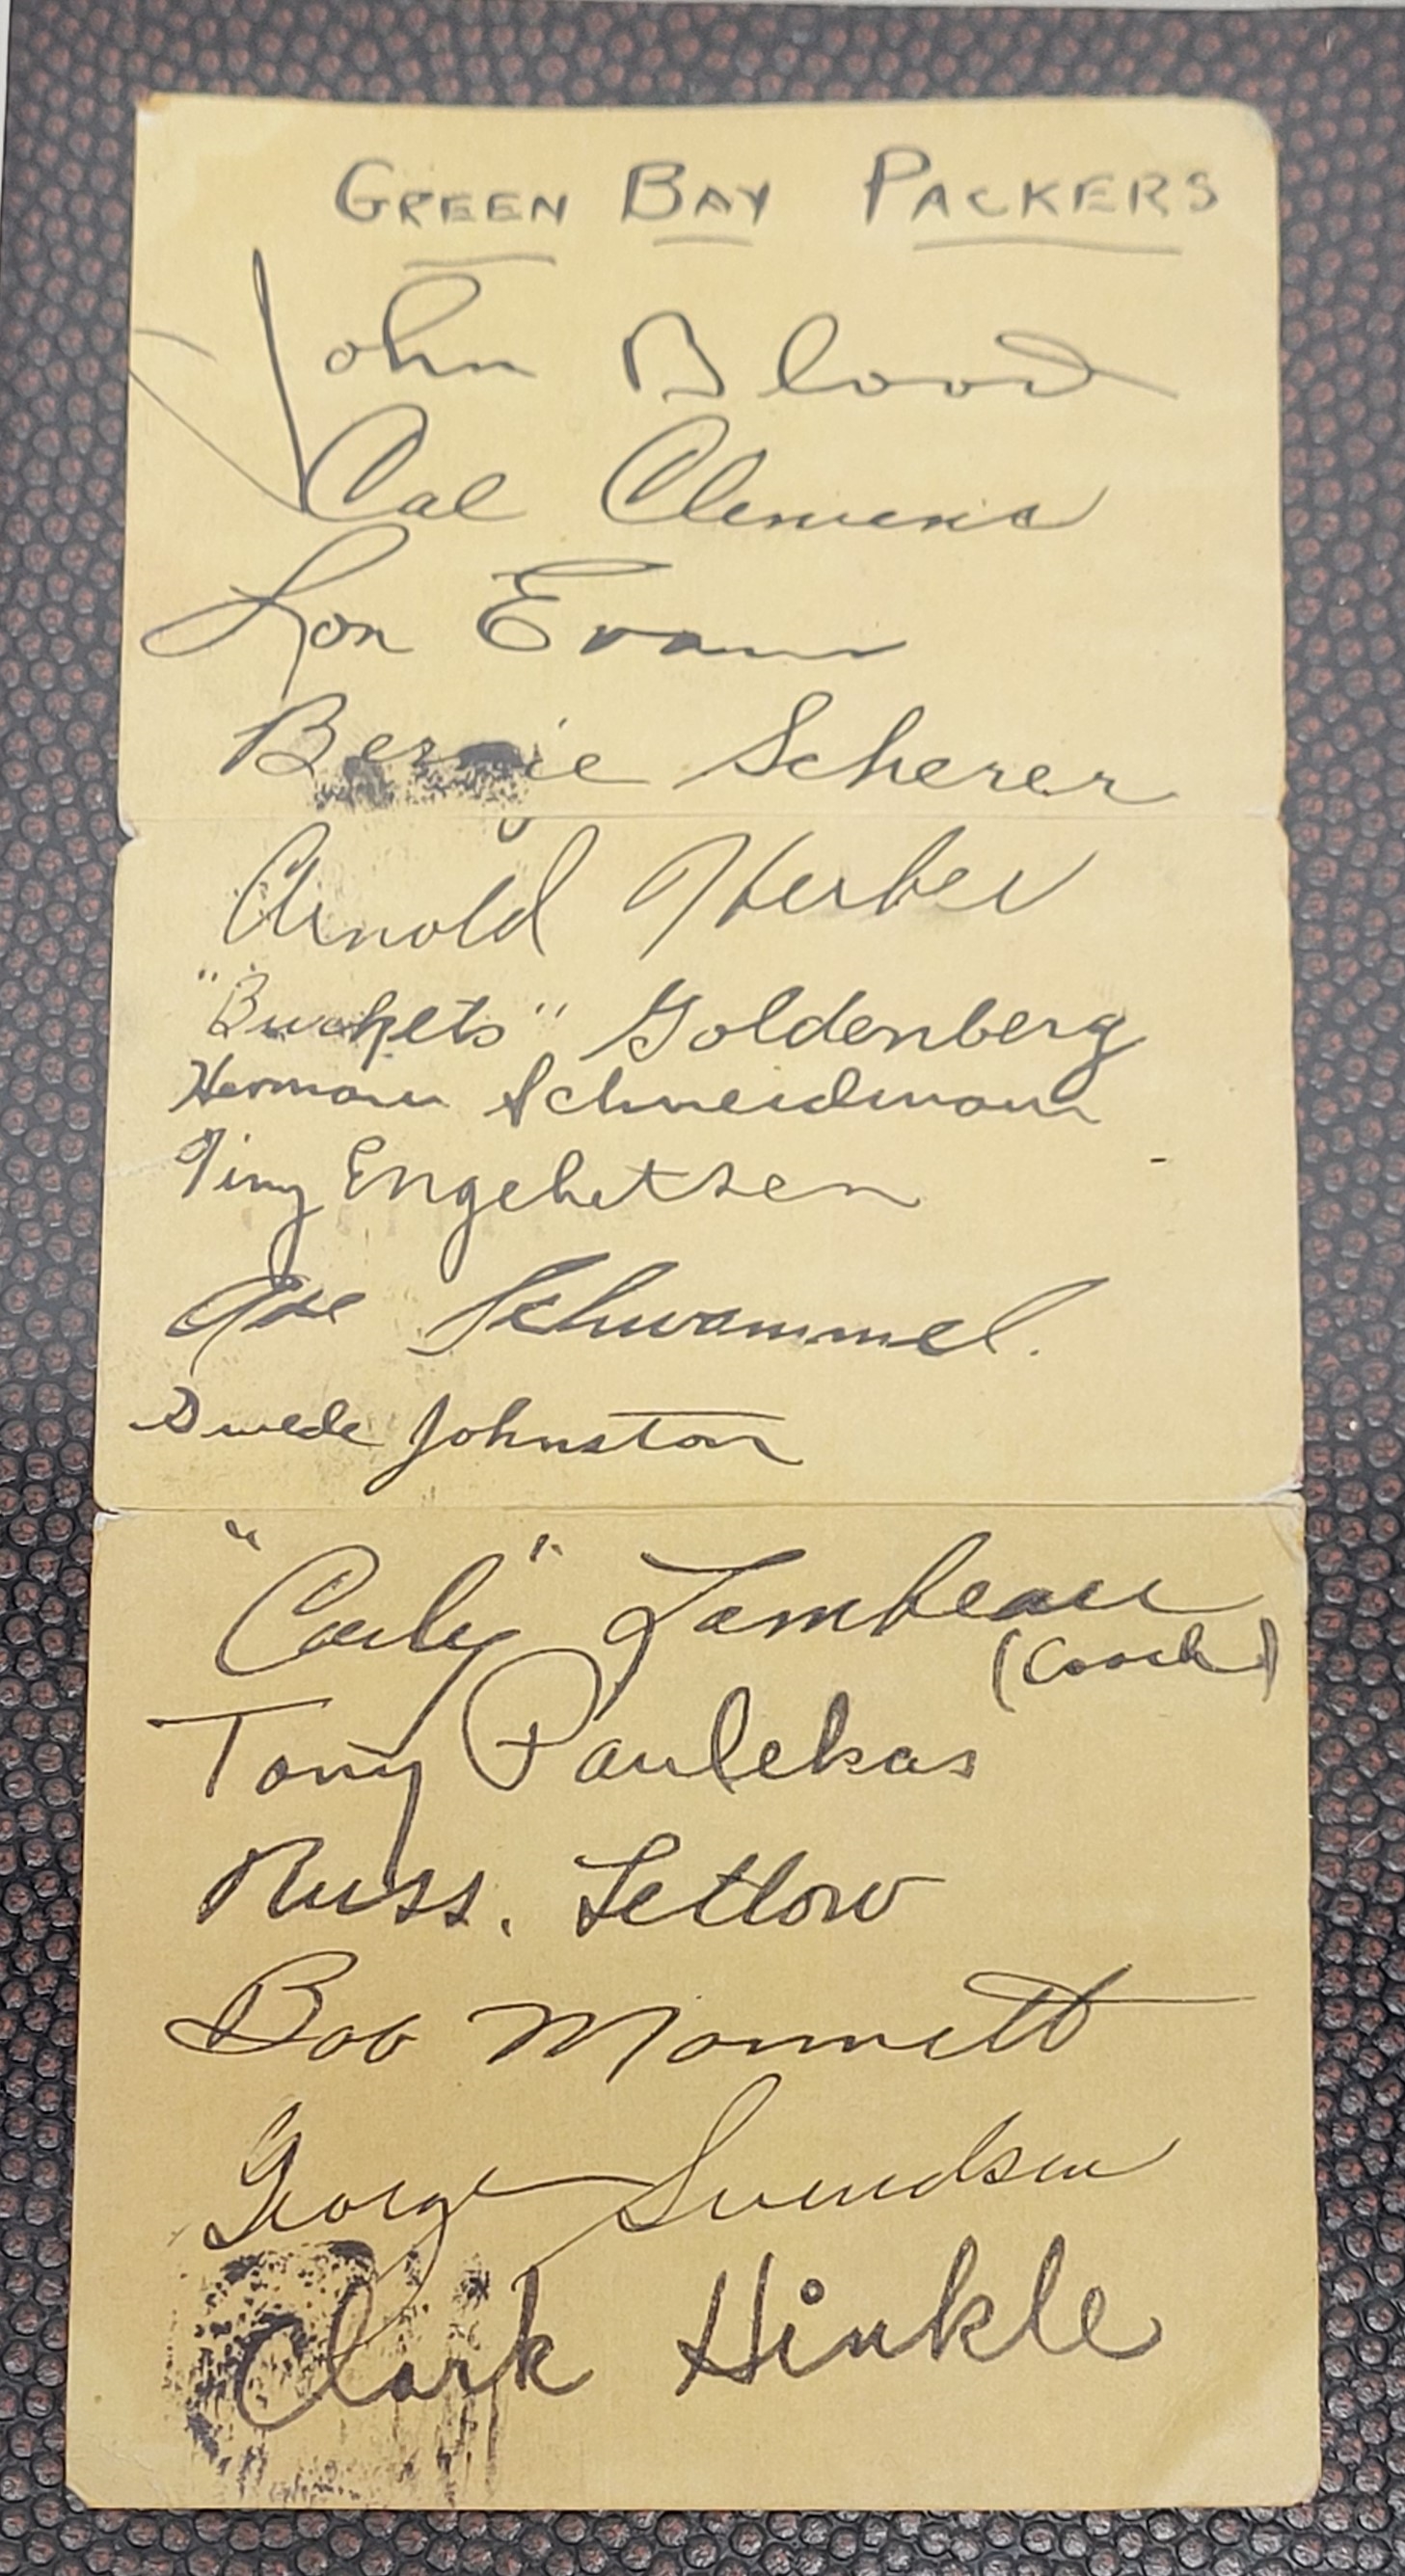 GREEN BAY PACKERS
John Blood
Cal Clemens
Lon Evans
Bernie Scherer
Arnold Herber
"Buckets" Goldenberg
Herman Schneidman
Tiny Engebretsen
Joe Schwammel.
Swede Johnston
"Curly" Lambeau
(Coach)
Tony Paulekas
Russ. Letlow
Bob Monnett
George Svendsen
Clark Hinkle